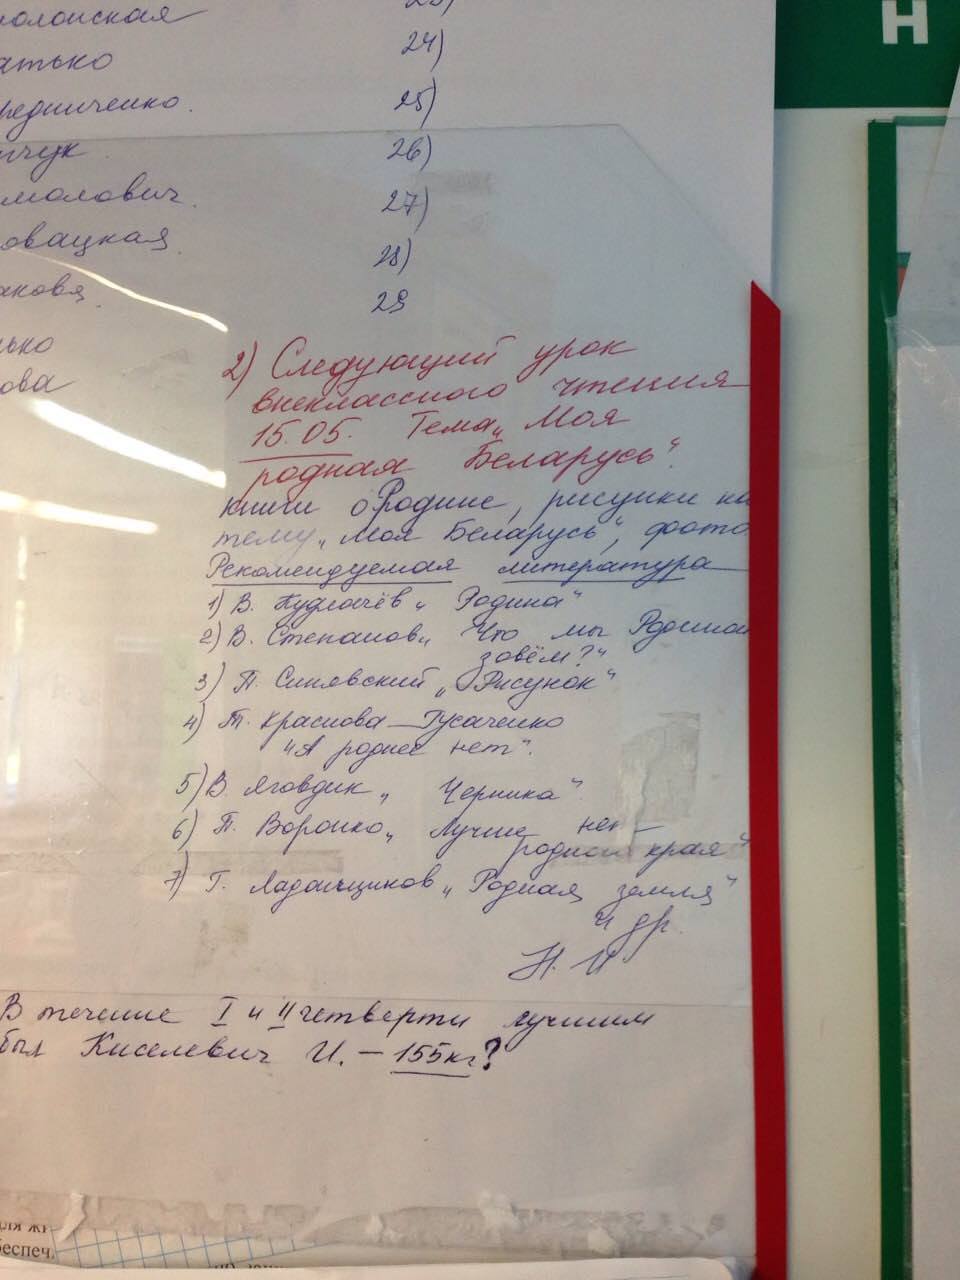 Н
24)
25)
26)
27)
28)
29
2) Следующий урок
внеклассного чтения
15.05. Тема „Моя
родная Беларусь“.
книги о Родине, рисунки на
тему „Моя Беларусь“, фото.
Рекомендуемая литература
1) В. Кудлачёв „Родина“
2) В. Степанов „Что мы Родиной
зовём?“
3) П. Синявский „Рисунок“
4) Т. Краснова-Гусаченко
„А роднее нет“.
5) В. Яговдик „Черника“.
6) П. Воронько „Лучше нет
родного края“
7) Г. Ладонщиков „Родная земля“
и др.
Н. И
В течение I и II четверти лучшим
был Киселевич И. – 155кг?